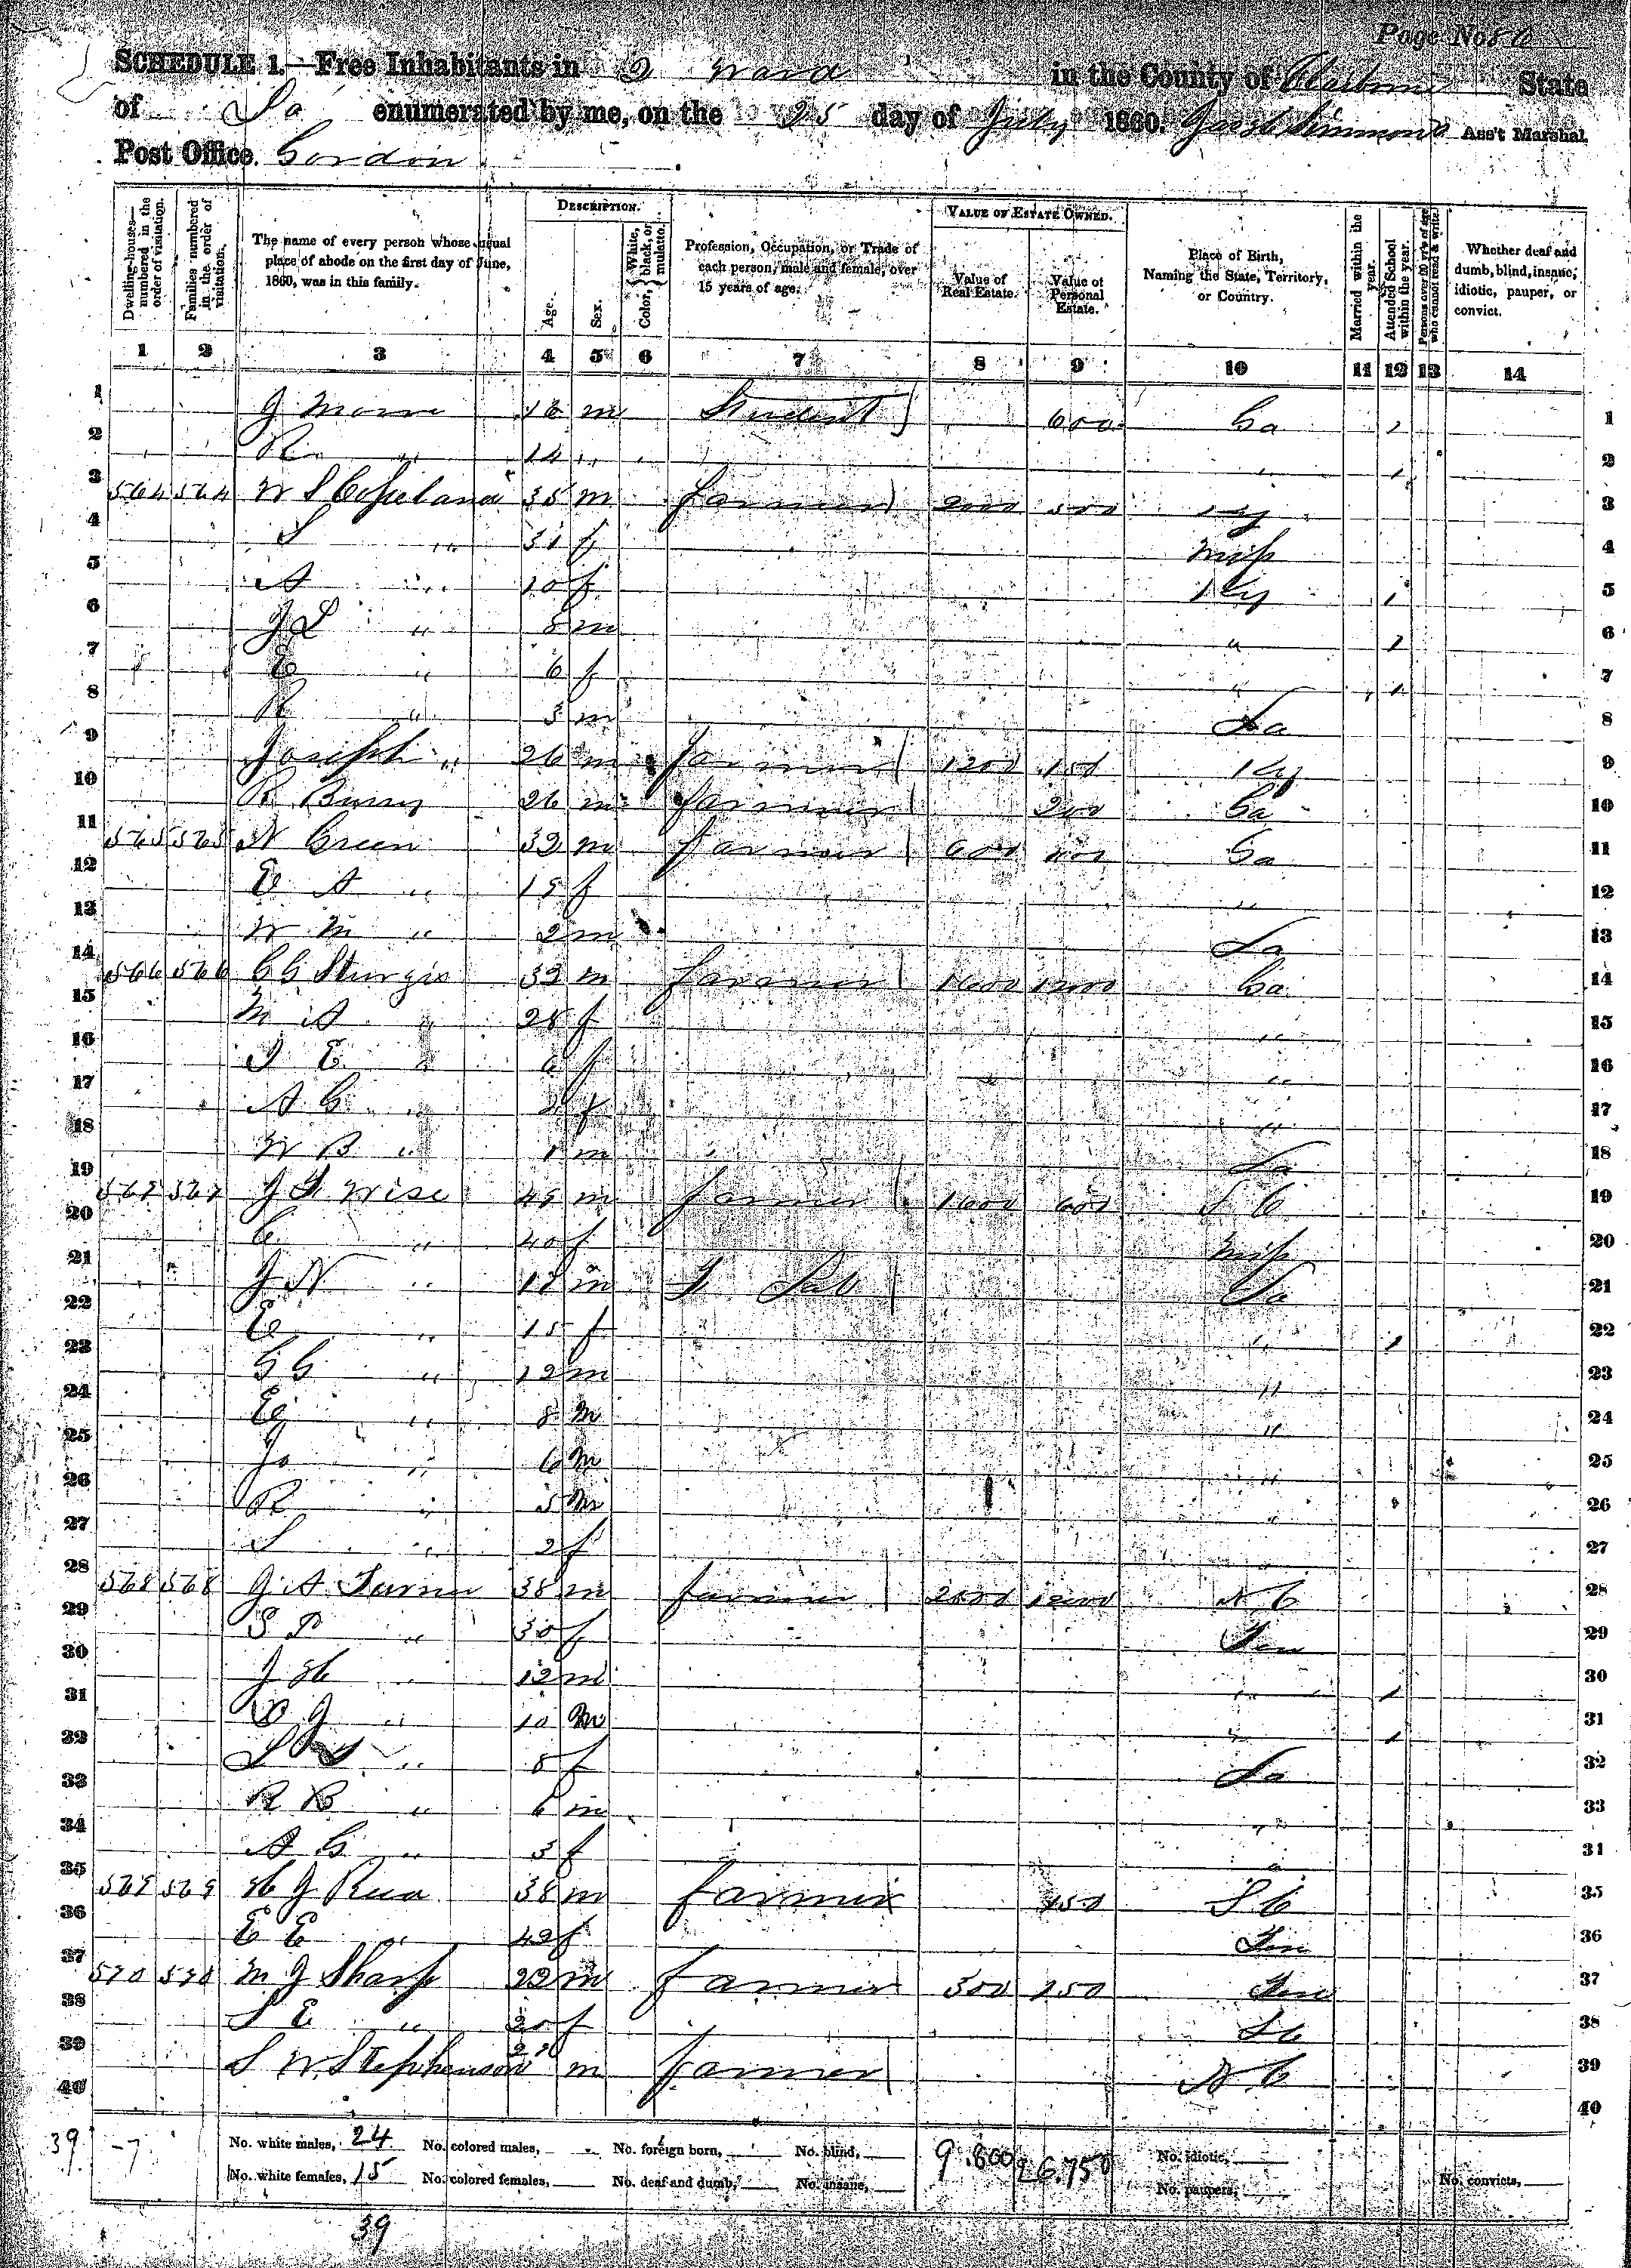 Page No 80
SCHEDULE 1.—Free Inhabitants in 2 Ward in the County of Claiborne State
of La enumerated by me, on the 25 day of July 1860. Simmons Ass't Marshal.
Post Office. Gordon
DESCRIPTION. VALUE OF ESTATE OWNED.
Dwelling-houses—numbered in the order of visitation.
Families numbered in the order of visitation.
The name of every person whose usual place of abode on the first day of June, 1860, was in this family.
Age.
Sex.
Color, { White, black, or mulatto.
Profession, Occupation, or Trade of each person, male and female, over 15 years of age.
Value of Real Estate.
Value of Personal Estate.
Place of Birth, Naming the State, Territory, or Country.
Married within the year.
Attended School within the year.
Persons over 20 y'rs of age who cannot read & write.
Whether deaf and dumb, blind, insane, idiotic, pauper, or convict.
1 2 3 4 5 6 7 8 9 10 11 12 13 14
1 J 16 m Student 600 Ga 1 1
2 R " 14 " " 1 2
3 564 564 W S Copeland 35 m farmer 2000 500 Ky 3
4 S " 31 f Miss 4
5 A " 10 f Ky 1 5
6 J L " 8 m " 1 6
7 E " 6 f " 1 7
8 R " 3 m La 8
9 Joseph " 26 m farmer 1200 150 Ky 9
10 R Burry 26 m farmer 200 Ga 10
11 565 565 N Green 32 m farmer 600 400 Ga 11
12 E A " 19 f " 12
13 W M " 2 m La 13
14 566 566 C C Sturgis 32 m farmer 1600 Ga 14
15 M A " 28 f " 15
16 E " 6 f " 16
17 A C " f " 17
18 W B " 1 m La 18
19 567 567 J Wise 49 m farmer 1600 600 S C 19
20 C " 40 f Miss 20
21 J N " 17 m La 21
22 E " 15 f " 1 22
23 G G " 12 m " 23
24 E " 8 m " 24
25 Jo " 6 m " 25
26 R " 5 m " 26
27 S " 2 f " 27
28 568 568 J A Turner 38 m farmer 2500 N C 28
29 S P " 30 f Ten 29
30 J H " 12 m " 1 30
31 J " 10 m " 1 31
32 L " 8 f La 32
33 R B " 6 m " 33
34 A G " 3 f " 34
35 569 569 H J Rua 38 m farmer 150 S C 35
36 E E " 42 f Ten 36
37 570 570 M J Sharp 22 m farmer 300 250 Ten 37
38 S E " 20 f S C 38
39 S W Stephenson m farmer N C 39
40 40
39 - 7 No. white males, 24 No. colored males, No. foreign born, No. blind, 9.800 26.750 No. idiotic,
No. white females, 15 No. colored females, No. deaf and dumb, No. insane, No. paupers, No. convicts,
39